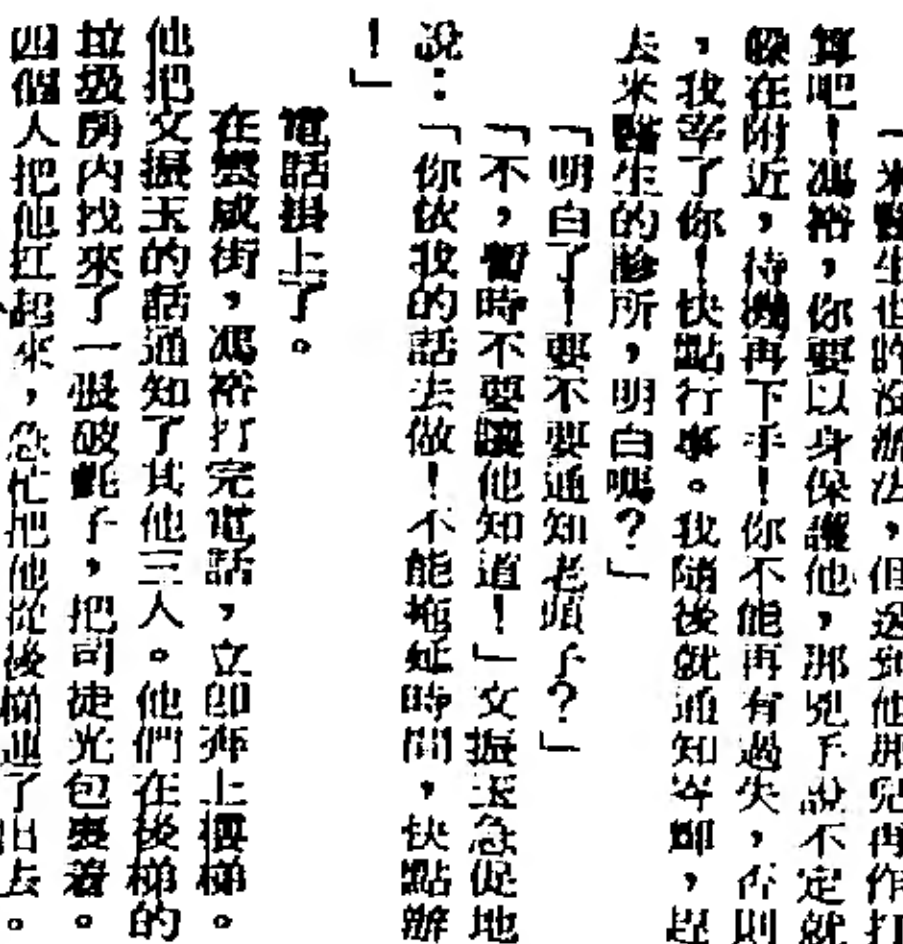 「米醫生也許沒辦法，但送到他那兒再作打
算吧！馮裕，你要以身保護他，那兇手說不定就
躲在附近，待機再下手！你不能再有過失，否則
，我宰了你！快點行事。我隨後就通知岑輝，趕
去米醫生的診所，明白嗎？」
「明白了！要不要通知老頭子？」
「不，暫時不要讓他知道！」文振玉急促地
說：「你依我的話去做！不能拖延時間，快點辦
！」
電話掛上了。
在雲咸街，馮裕打完電話，立即奔上樓梯。
他把文振玉的話通知了其他三人。他們在後梯的
垃圾房內找來了一張破氈子，把司徒光包裹着。
四個人把他扛起來，急忙把他從後梯運了出去。